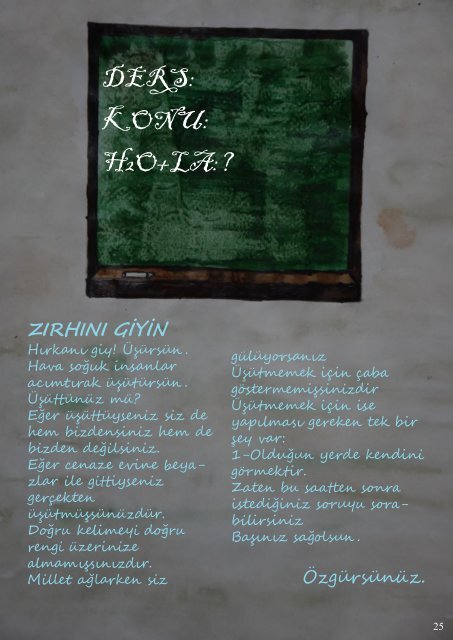 DERS:
KONU:
H2O+LA:?
ZIRHINI GİYİN
Hırkanı giy! Üşürsün.
Hava soğuk insanlar
acımtırak üşütürsün.
Üşüttünüz mü?
Eğer üşüttüyseniz siz de
hem bizdensiniz hem de
bizden değilsiniz.
Eğer cenaze evine beya-
zlar ile gittiyseniz
gerçekten
üşütmüşsünüzdür.
Doğru kelimeyi doğru
rengi üzerinize
almamışsınızdır.
Millet ağlarken siz
gülüyorsanız
Üşütmemek için çaba
göstermemişsinizdir
Üşütmemek için ise
yapılması gereken tek bir
şey var:
1-Olduğun yerde kendini
görmektir.
Zaten bu saatten sonra
istediğiniz soruyu sora-
bilirsiniz
Başınız sağolsun.
Özgürsünüz.
25